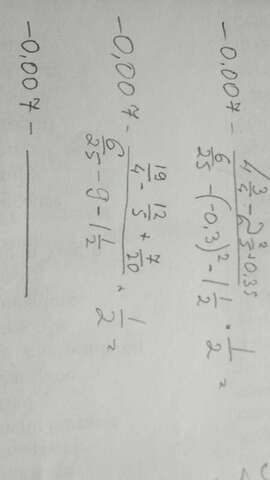 -0,007 - (4 3/4 - 2 2/5 + 0,35)/(6/25 - (-0,3)² - 1 1/2) · 1/2 =
-0,007 - (19/4 - 12/5 + 7/20)/(6/25 - 9 - 1 1/2) · 1/2 =
-0,007 -